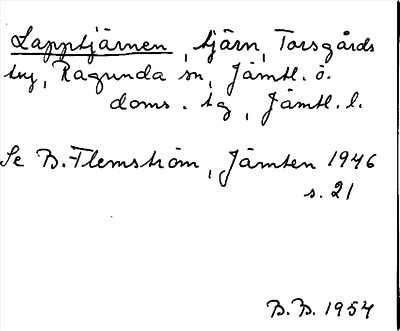 Lapptjärnen, tjärn, Torsgårds
by, Ragunda sn, Jämtl. ö.
doms. tg, Jämtl. l.
Se B. Flemström, Jämten 1946
s. 21
B.B. 1954